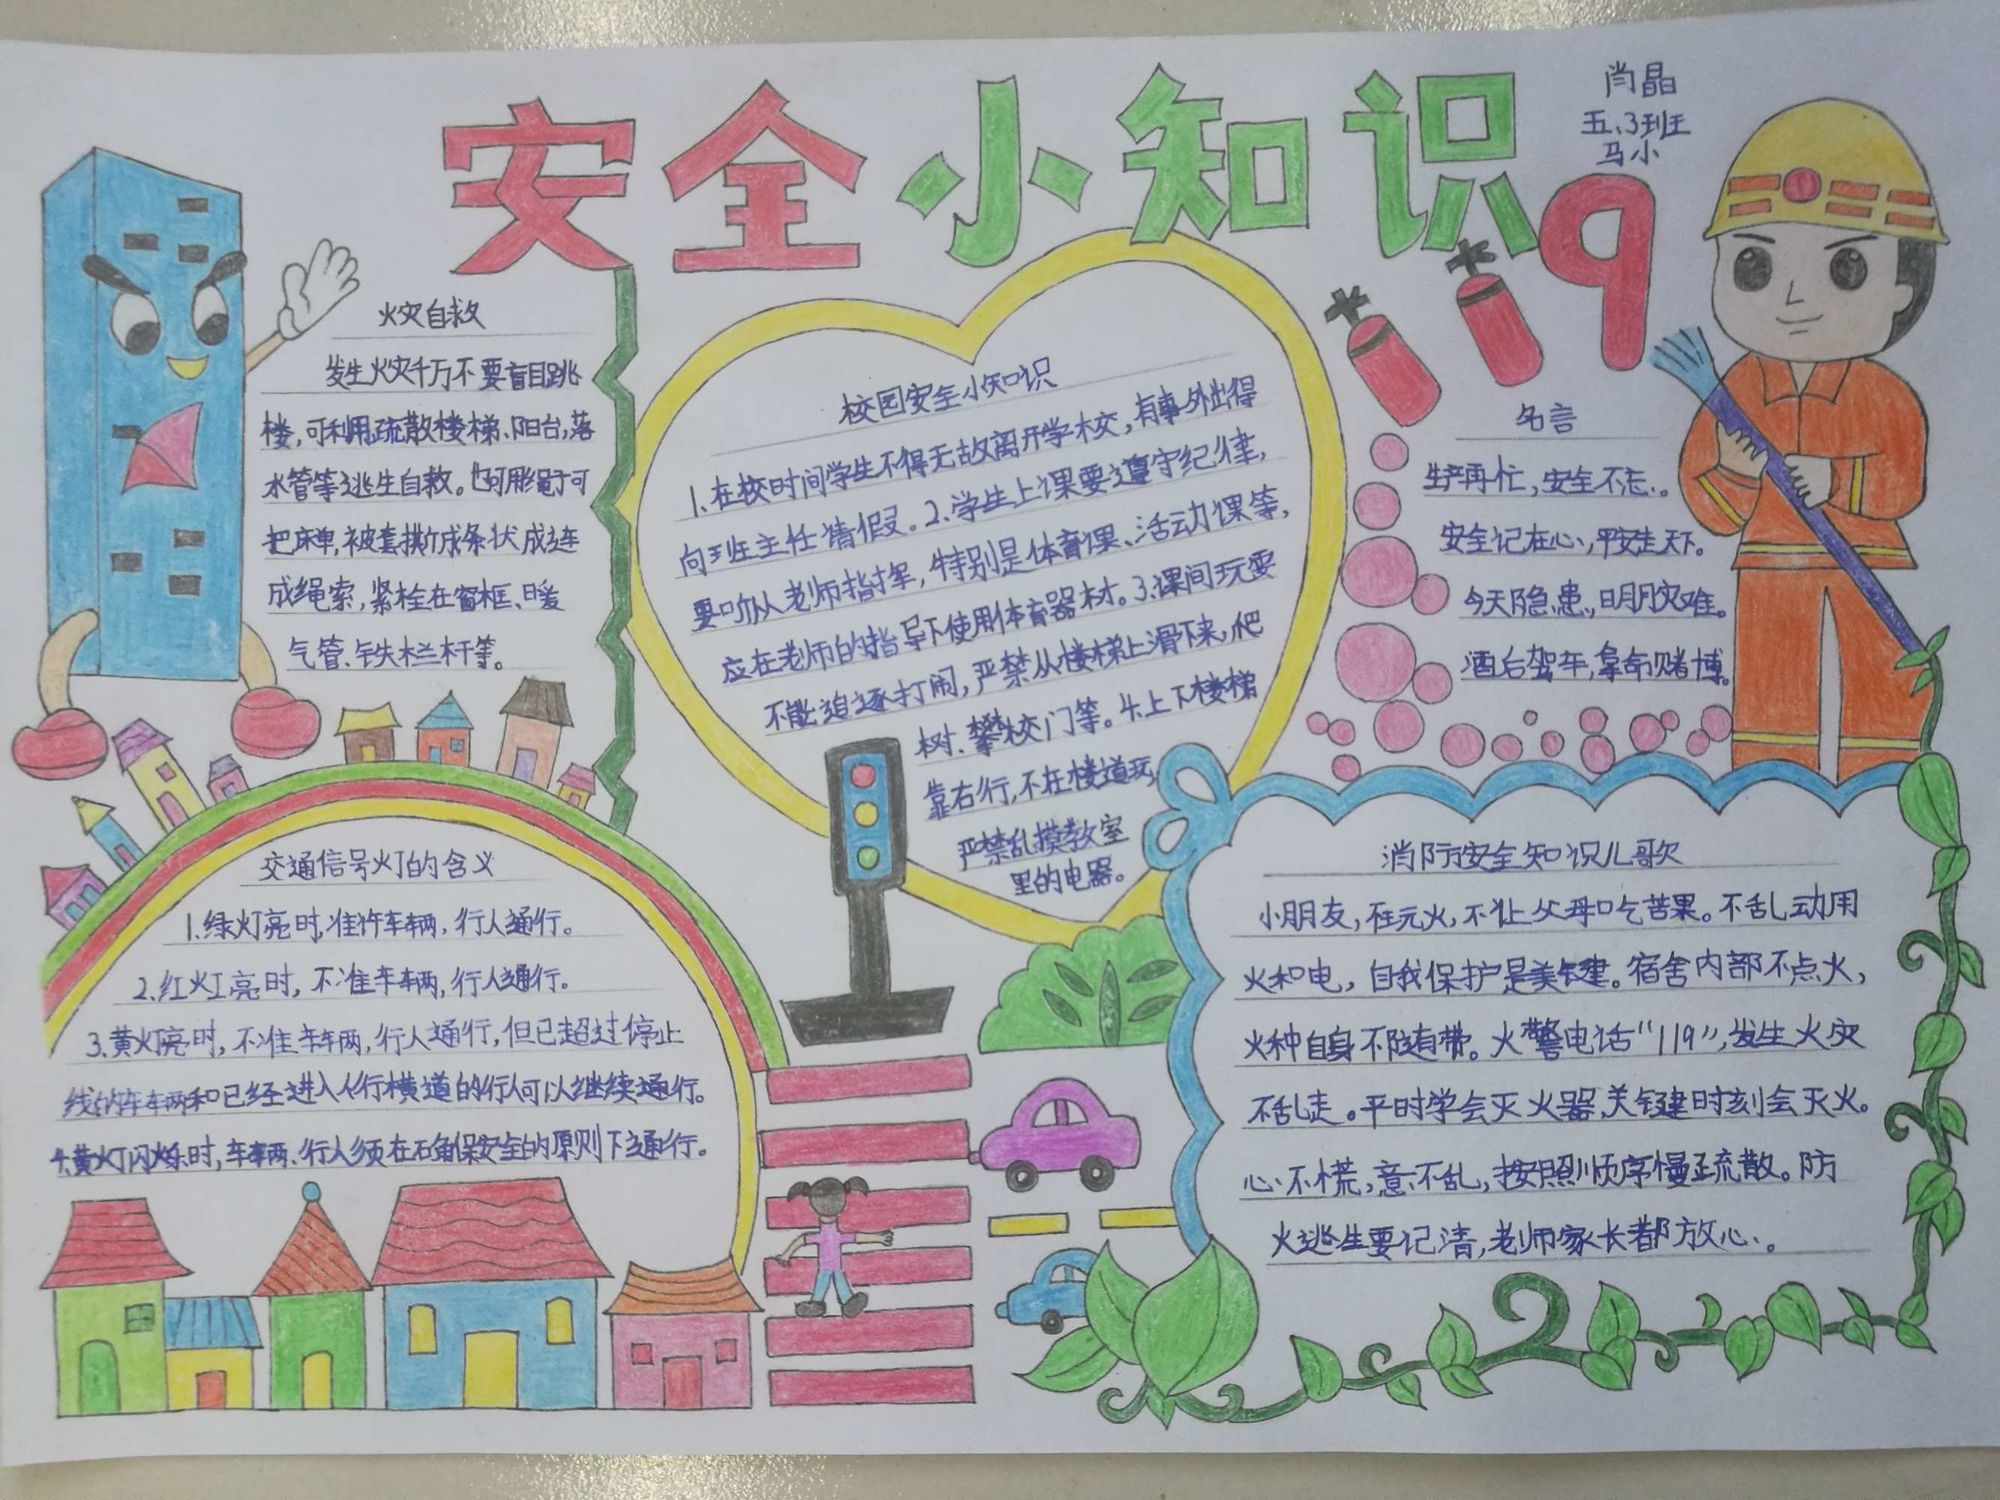 安全小知识
闫晶
五、3班
马小
火灾自救
发生火灾千万不要盲目跳
楼,可利用疏散楼梯、阳台,落
水管等逃生自救。也可用绳子可
把床单,被套撕成条状成连
成绳索,紧栓在窗框、暖
气管、铁栏杆等。
校园安全小知识
1、在校时间学生不得无故离开学校,有事外出得
向班主任请假。2、学生上课要遵守纪律,
要听从老师指挥,特别是体育课、活动课等,
应在老师的指导下使用体育器材。3、课间玩耍
不能追逐打闹,严禁从楼梯上滑下来,爬
树、攀校门等。4、上下楼梯
靠右行,不在楼道玩,
严禁乱摸教室
里的电器。
119
名言
生产再忙,安全不忘。
安全记在心,平安走天下。
今天隐患,明月灾难。
酒后驾车,拿命赌博。
交通信号灯的含义
1.绿灯亮时,准许车辆,行人通行。
2.红灯亮时,不准车辆,行人通行。
3.黄灯亮时,不准车辆,行人通行,但已超过停止
线的车辆和已经进入人行横道的行人可以继续通行。
4.黄灯闪烁时,车辆、行人须在确保安全的原则下通行。
消防安全知识儿歌
小朋友,在玩火,不让父母吃苦果。不乱动用
火和电,自我保护是关键。宿舍内部不点火,
火种自身不随有带。火警电话“119”,发生火灾
不乱走。平时学会灭火器,关键时刻会灭火。
心不慌,意不乱,按照顺序慢疏散。防
火逃生要记清,老师家长都放心。